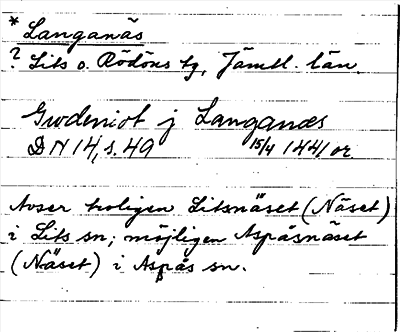 * Langanäs
? Lits o. Rödöns tg, Jämtl. län.
Gudeniot j Langanæs
DN 14, s. 49 15/4 1441 or.
Avser troligen Litsnäset (Näset)
i Lits sn; möjligen Aspåsnäset
(Näset) i Aspås sn.